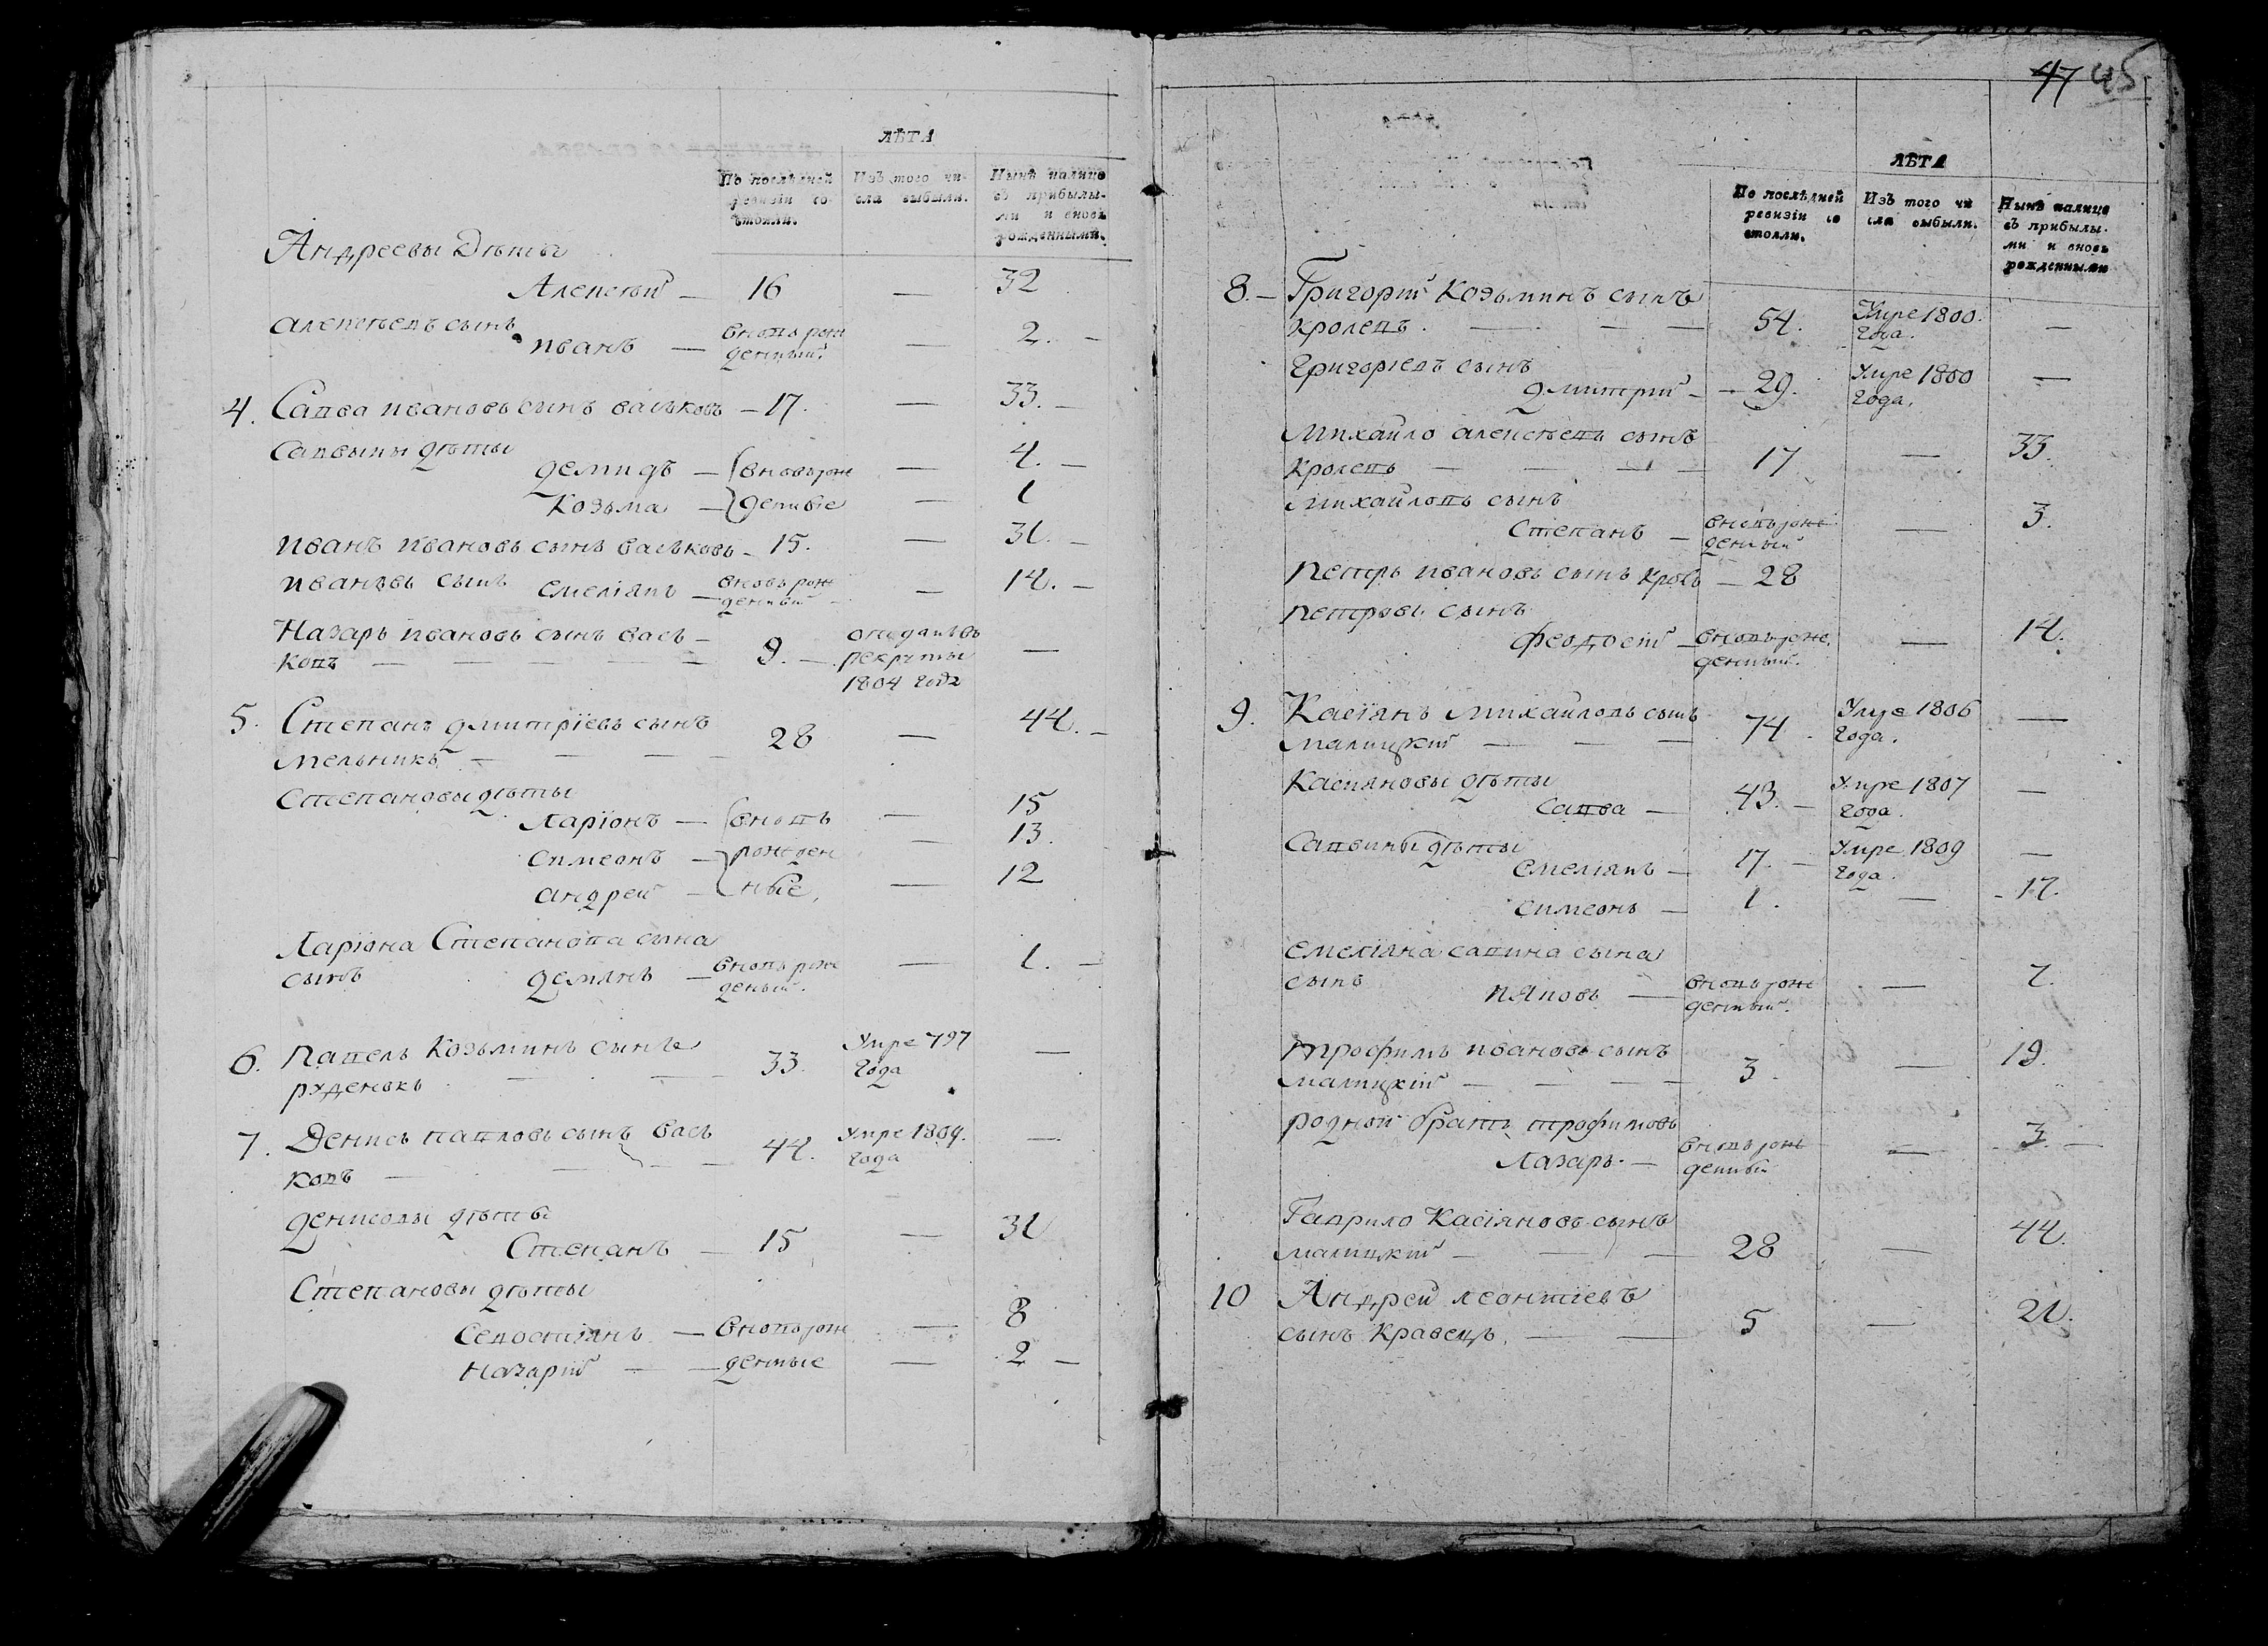 ЛѢТА
По послѣдней ревизіи состояли.
Изъ того числа выбыли.
Нынѣ налицо съ прибылыми и вновь рожденными.
Андреевы Дѣты
Алексѣй — 16 — 32
алексѣевъ сынъ
иванъ — вновь рож
денный. — 2. —
4. Савва ивановъ сынъ васьковъ — 17. — 33. —
Саввины дѣты
демидъ — вновь рож — 4. —
Козьма — денные — 1
иванъ ивановъ сынъ васьковъ — 15. — 31. —
ивановъ сынъ емеліянъ — вновь рож
денный — 14. —
Назаръ ивановъ сынъ вась —
ковъ — — — — — 9. — отданъ въ
рекруты
1804 года —
5. Степанъ дмитріевъ сынъ
мельникъ — — — — 28 — 44. —
Степановы дѣты
Ларіонъ — вновь — 15
симеонъ — рожден 13.
андрей — ные, — 12
Ларіона Степанова сына
сынъ демянъ — вновь рож
деный. — 1. —
6. павелъ Козьминъ сынъ
руденокъ — — 33. Умре 797
года —
7. Денисъ павловъ сынъ вась
ковъ — — — — 44. Умре 1804.
года —
денисовы дѣты
Степанъ — 15 — 31
Степановы дѣты
Севостіянъ — вновь рож — 8
Назарій — — денные — 2 —
47 45
ЛѢТА
По послѣдней ревизіи состояли.
Изъ того числа выбыли.
Нынѣ налицо съ прибылыми и вновь рожденными
8. — Григорій Козьминъ сынъ
кролевъ. — — — 54. Умре 1800.
года. —
григоріевъ сынъ
дмитрій — — 29. Умре 1800
года. —
михайло алексѣевъ сынъ
кролевъ — — — — 17 — 33.
михайловъ сынъ
Степанъ — вновь рож
денный — 3.
петръ ивановъ сынъ кровъ — 28
петровъ сынъ
феодосій — вновь рож.
денный. — 14.
9. Касіянъ михайловъ сынъ
малицкій — — — 74. Умре 1806
года. —
Касияновы дѣты
савва — 43. — Умре 1807
года. —
Саввины дѣты
емеліянъ — 17. — Умре 1809
года. —
симеонъ — 1. — 17.
емеліяна савина сына
сынъ — вновь рож
денный. — 7.
трофимъ ивановъ сынъ
малицкій — — — — 3. — 19.
родной братъ трофимовъ
Лазаръ. — вновь рож
денный — 3. —
Гаврило Касіяновъ сынъ
малицкій — — — 28 — 44.
10 Андрей леонтіевъ
сынъ кравецъ. — — 5 — 21.